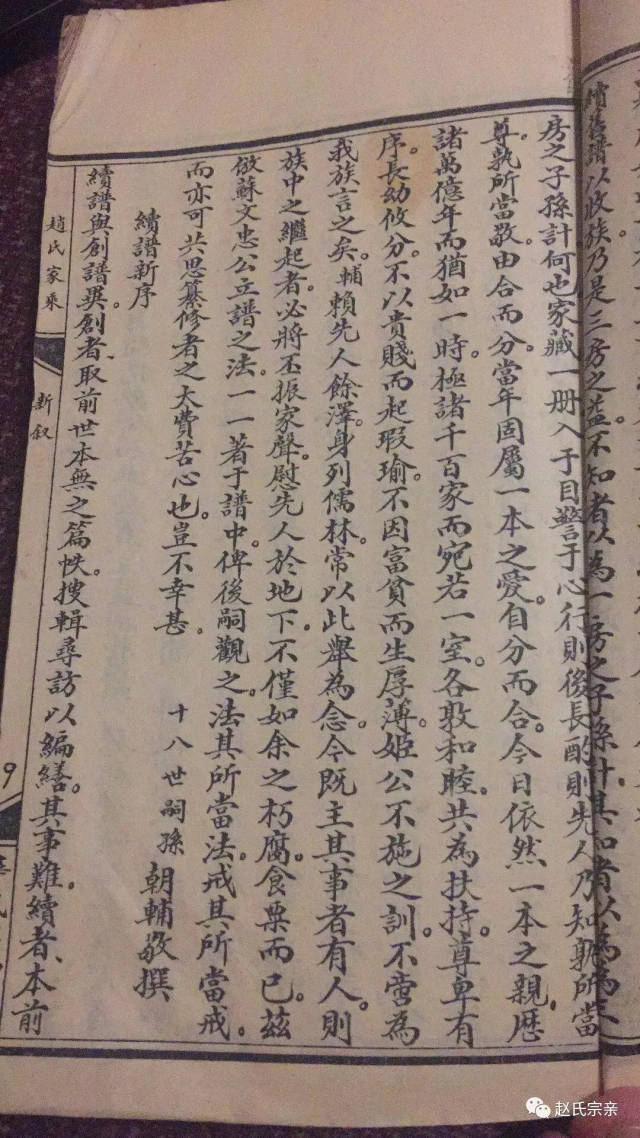 續舊譜以收族乃是三房之益不知者以為一房之子孫計其知者以為為三
房之子孫計何也家藏一册入于目警于心行則後長酌則先人乃知孰所當
尊孰所當敬由合而分當年固屬一本之愛自分而合今日依然一本之親歷
諸萬億年而猶如一時極諸千百家而宛若一室各敦和睦共為扶持尊卑有
序長幼攸分不以貴賤而起瑕瑜不因富貧而生厚薄姬公不施之訓不啻為
我族言之矣輔賴先人餘澤身列儒林常以此舉為念今既主其事者有人則
族中之繼起者必將丕振家聲慰先人於地下不僅如余之朽腐食粟而已茲
倣蘇文忠公立譜之法一一著于譜中俾後嗣觀之法其所當法戒其所當戒
而亦可共思纂修者之大費苦心也豈不幸甚
十八世嗣孫 朝輔敬撰
續譜新序
續譜與創譜異創者取前世本無之篇帙搜輯尋訪以編繕其事難續者本前
趙氏家乘
新叙
9
赵氏宗亲